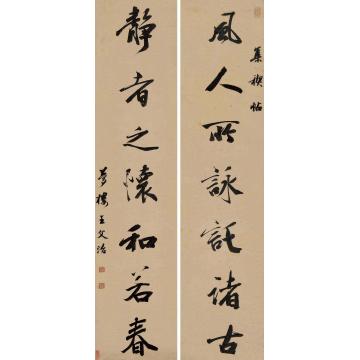 風人所詠託諸古
集禊帖
靜者之懷和若春
夢樓王文治